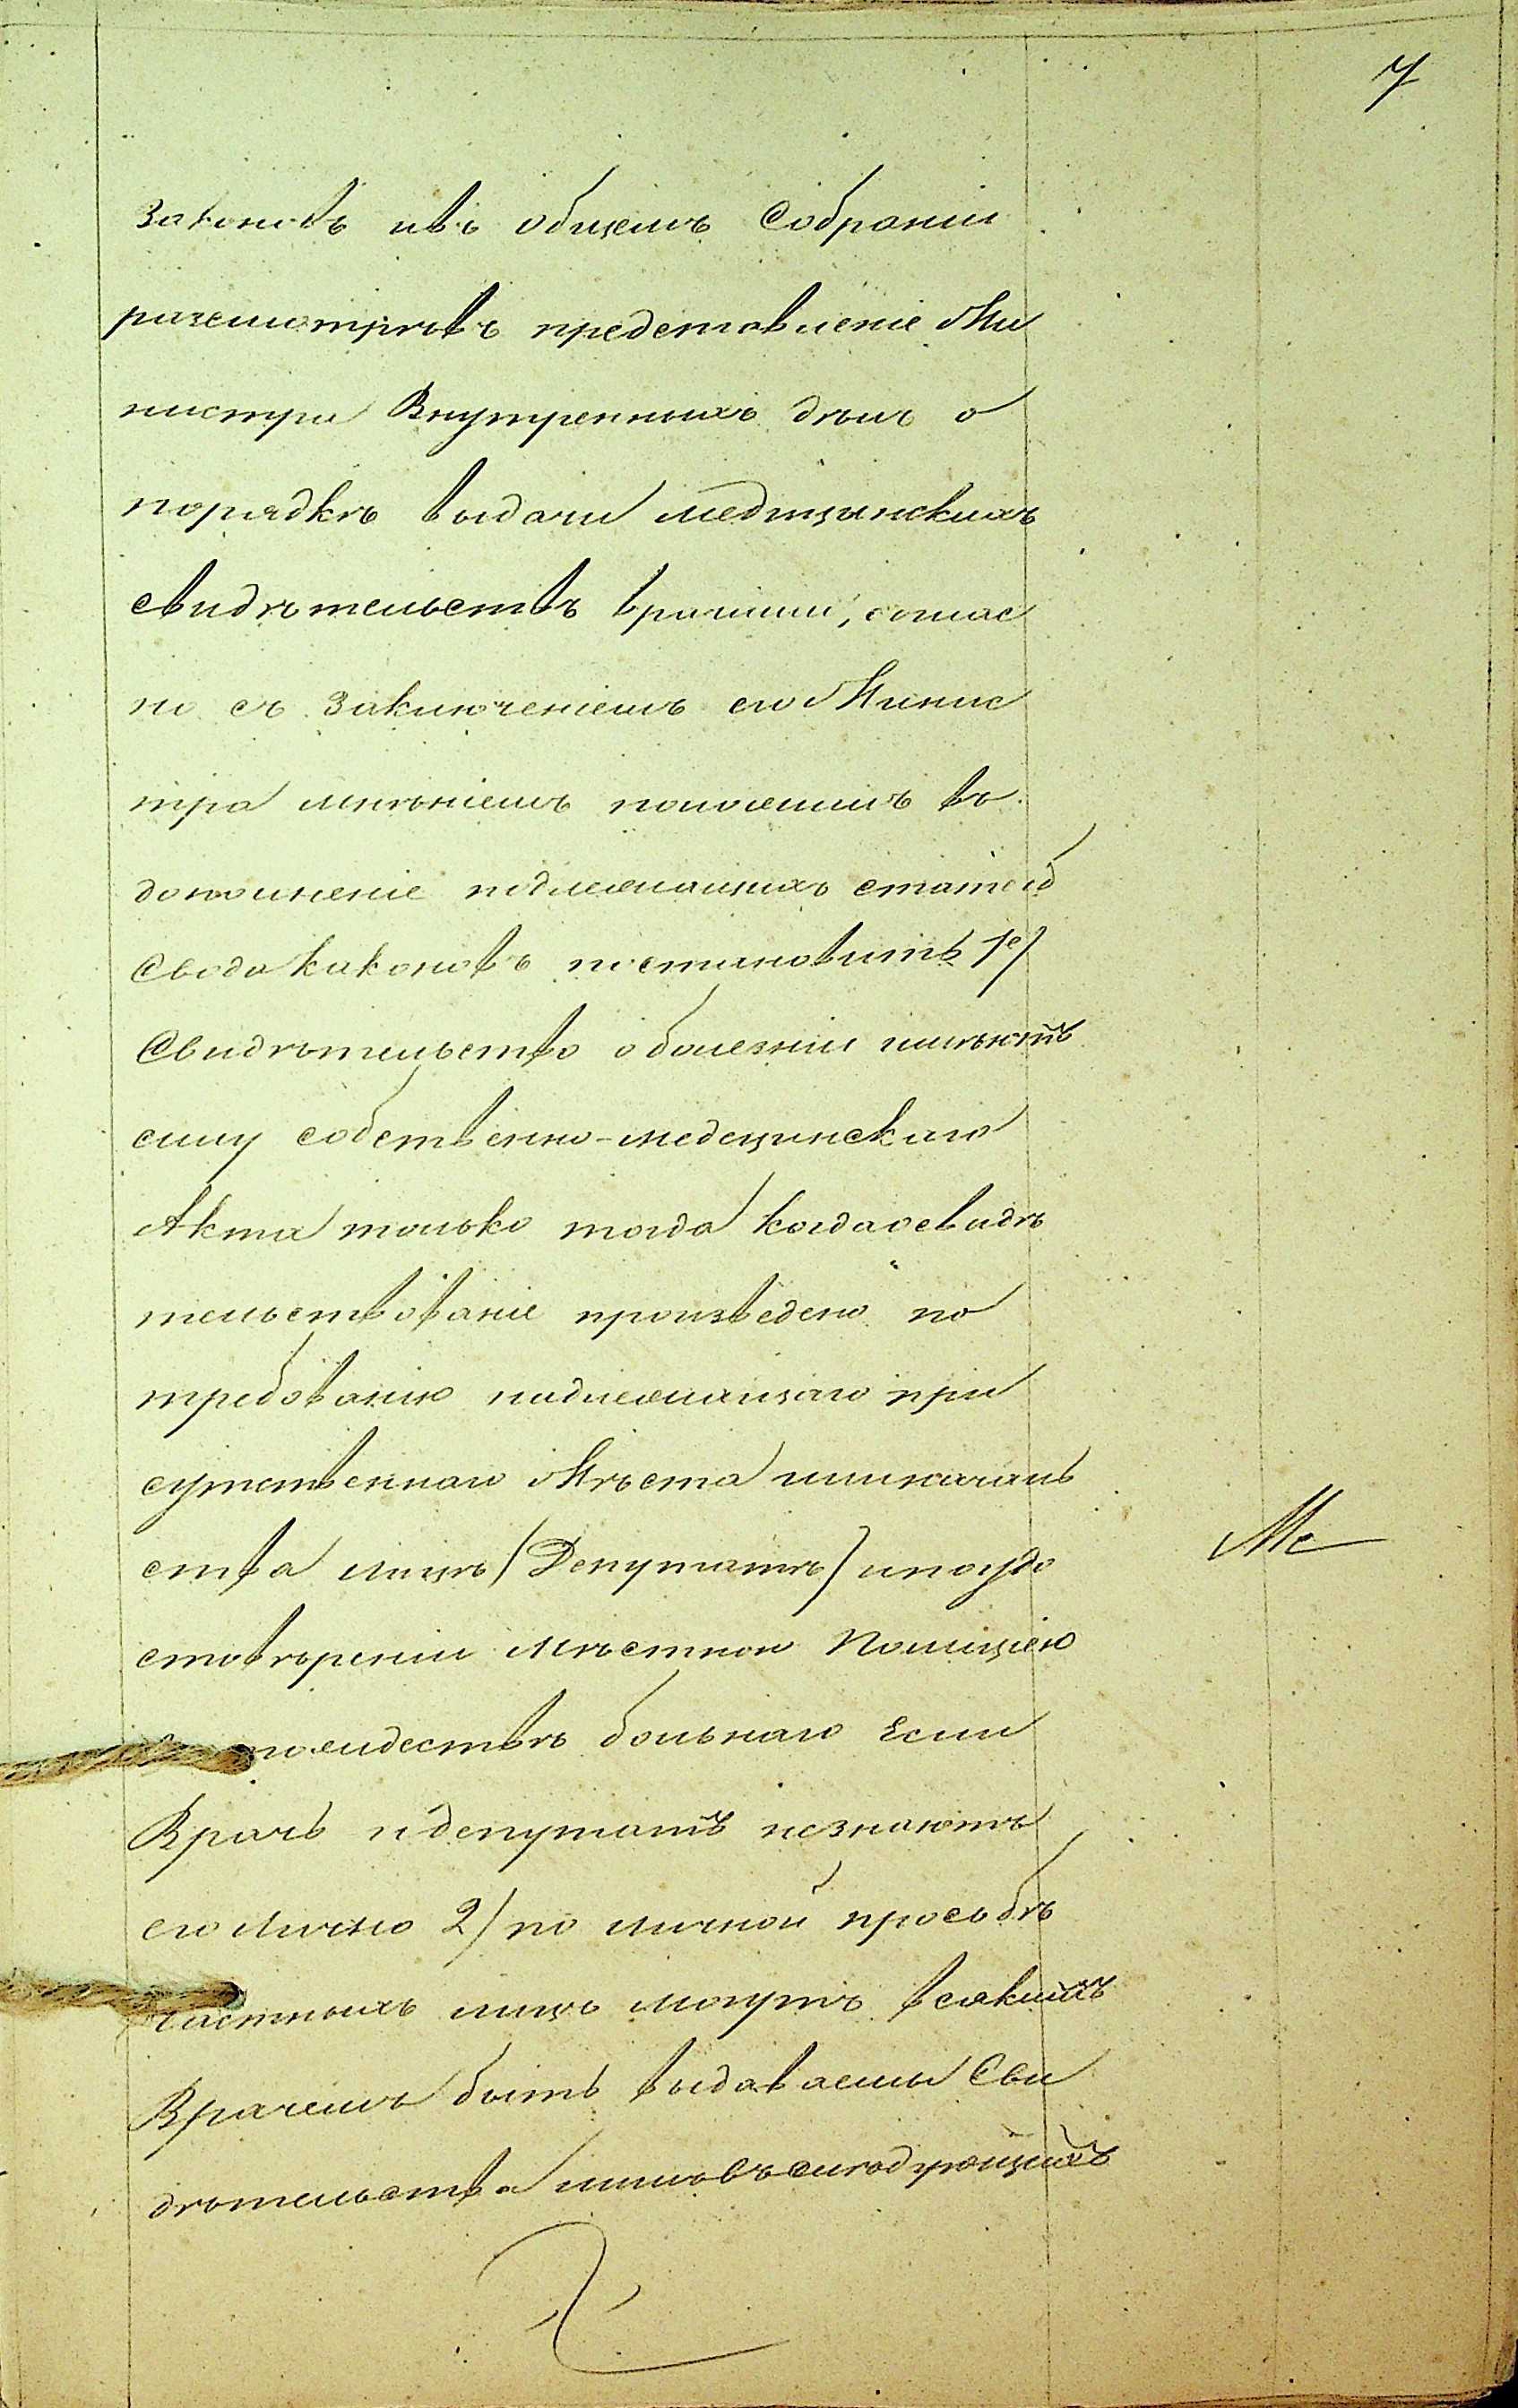 7
законовъ ивъ общемъ Собраніи
разсмотрѣвъ представленіе Ми
нистра Внутреннихъ дѣлъ о
порядкѣ выдачи медицинскихъ
свидѣтельствъ врачами, соглас
но съ заключеніемъ его Минис
тра мнѣніемъ положилъ въ
дополненіе подлежащихъ статей
Свода каконовъ постановить 1е)
Свидѣтельство оболезни имѣютъ
силу собственно-медецинскаго
Акта только тогда когда освидѣ
тельствованіе произведено по
требованію надлежащаго при
сутственнаго Мѣста илиначаль
ства лицъ (Депутатъ) ипоудо
стовѣреніи Мѣстною Полиціею
тождествѣ больнаго Если
Врачь идепутатъ незнаютъ
его лично 2) по личной просьбѣ
частныхъ лицъ могутъ всякимъ
Врачемъ быть выдаваемы Сви
дѣтельства лишь въ слѣдующихъ
Ме